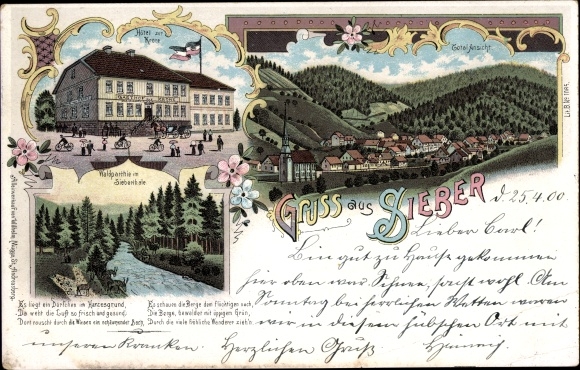 Hôtel zur Krone
Total Ansicht
GASTHOF ZUR KRONE
Waldparthie im Siebenthale
Gruss aus SIEBER
d. 25.4.00
Lieber Carl!
Bin gut zu Hause gekommen
hier oben war Schnee, sacht wohl. Am
Sonntag bei herrlichen Wetter waren
wir in diesem hübschen Ort mit
unseren Kranken. Herzlichen Gruß Heinrich.
Es liegt ein Dörfchen im Harzesgrund,
Da weht die Luft so frisch und gesund,
Dort rauscht durch die Wiesen ein
Es schauen die Berge dem Flüchtigen nach,
Die Berge, bewaldet mit üppigem Grün,
Durch die viele fröhliche Wanderer zieh'n.